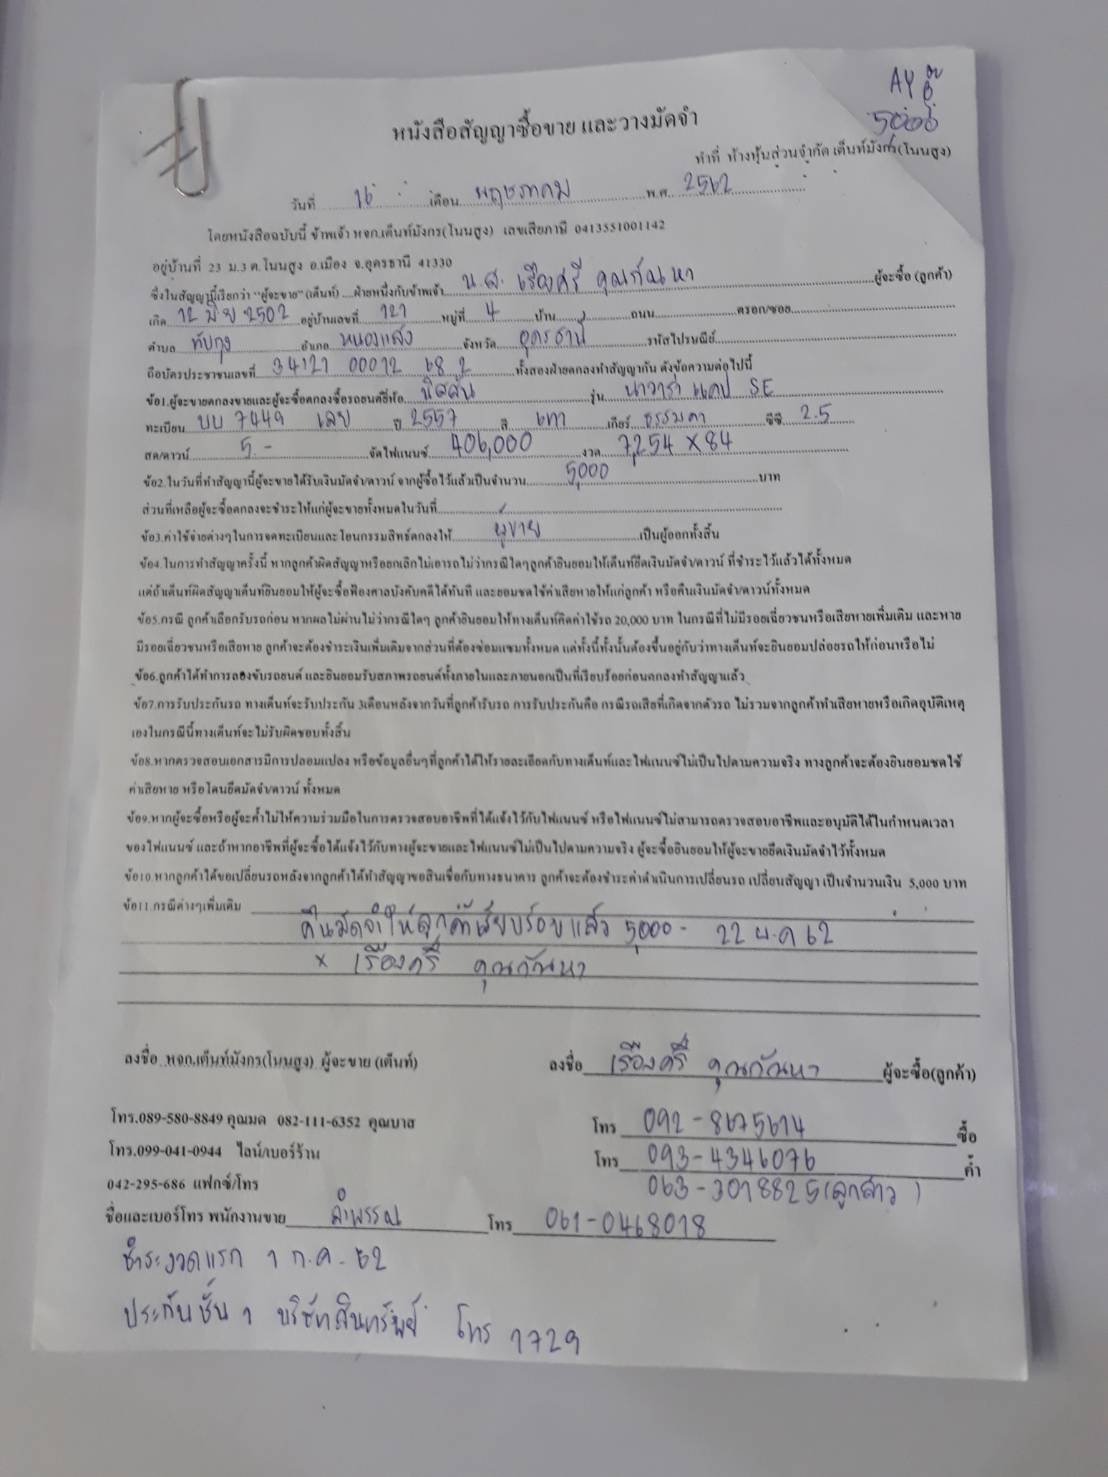 AY
5000
หนังสือสัญญาซื้อขาย และวางมัดจำ
ทำที่ ห้างหุ้นส่วนจำกัด เต็นท์มังกร(โนนสูง)
วันที่ 16 เดือน พฤษภาคม พ.ศ. 2562
โดยหนังสือฉบับนี้ ข้าพเจ้า หจก.เต็นท์มังกร(โนนสูง) เลขเสียภาษี 0413551001142
อยู่บ้านที่ 23 ม.3 ต.โนนสูง อ.เมือง จ.อุดรธานี 41330
ซึ่งในสัญญานี้เรียกว่า "ผู้จะขาย"(เต็นท์) ฝ่ายหนึ่งกับข้าพเจ้า น.ส. เรืองศรี คุณกัณหา ผู้จะซื้อ (ลูกค้า)
เกิด 12 มิย 2502 อยู่บ้านเลขที่ 121 หมู่ที่ 4 บ้าน ถนน ตรอก/ซอย
ตำบล ทับกุง อำเภอ หนองแสง จังหวัด อุดรธานี รหัสไปรษณีย์
ถือบัตรประชาชนเลขที่ 34121 00012 68 2 ทั้งสองฝ่ายตกลงทำสัญญากัน ดังข้อความต่อไปนี้
ข้อ1.ผู้จะขายตกลงขายและผู้จะซื้อตกลงซื้อรถยนต์ยี่ห้อ นิสสัน รุ่น นาวาร่า แคป SE
ทะเบียน บบ 7449 เลย ปี 2557 สี เทา เกียร์ ธรรมดา ซีซี 2.5
สด/ดาวน์ 5.- จัดไฟแนนซ์ 406,000 งวด 7,254 x 84
ข้อ2.ในวันที่ทำสัญญานี้ผู้จะขายได้รับเงินมัดจำ/ดาวน์ จากผู้ซื้อไว้แล้วเป็นจำนวน 5,000 บาท
ส่วนที่เหลือผู้จะซื้อตกลงจะชำระให้แก่ผู้จะขายทั้งหมดในวันที่
ข้อ3.ค่าใช้จ่ายต่างๆในการจดทะเบียนและโอนกรรมสิทธ์ตกลงให้ ผู้ขาย เป็นผู้ออกทั้งสิ้น
ข้อ4.ในการทำสัญญาครั้งนี้ หากลูกค้าผิดสัญญาหรือยกเลิกไม่เอารถไม่ว่ากรณีใดๆลูกค้ายินยอมให้เต็นท์ยึดเงินมัดจำ/ดาวน์ ที่ชำระไว้แล้วได้ทั้งหมด
แต่ถ้าเต็นท์ผิดสัญญาเต็นท์ยินยอมให้ผู้จะซื้อฟ้องศาลบังคับคดีได้ทันที และยอมชดใช้ค่าเสียหายให้แก่ลูกค้า หรือคืนเงินมัดจำ/ดาวน์ทั้งหมด
ข้อ5.กรณี ลูกค้าเลือกรับรถก่อน หากผลไม่ผ่านไม่ว่ากรณีใดๆ ลูกค้ายินยอมให้ทางเต็นท์คิดค่าใช้รถ 20,000 บาท ในกรณีที่ไม่มีรอยเฉี่ยวชนหรือเสียหายเพิ่มเติม และหาย
มีรอยเฉี่ยวชนหรือเสียหาย ลูกค้าจะต้องชำระเงินเพิ่มเติมจากส่วนที่ต้องซ่อมแซมทั้งหมด แต่ทั้งนี้ทั้งนั้นต้องขึ้นอยู่กับว่าทางเต็นท์จะยินยอมปล่อยรถให้ก่อนหรือไม่
ข้อ6.ลูกค้าได้ทำการลองขับรถยนต์ และยินยอมรับสภาพรถยนต์ทั้งภายในและภายนอกเป็นที่เรียบร้อยก่อนตกลงทำสัญญาแล้ว
ข้อ7.การรับประกันรถ ทางเต็นท์จะรับประกัน 3เดือนหลังจากวันที่ลูกค้ารับรถ การรับประกันคือ กรณีรถเสียที่เกิดจากตัวรถ ไม่รวมจากลูกค้าทำเสียหายหรือเกิดอุบัติเหตุ
เองในกรณีนี้ทางเต็นท์จะไม่รับผิดชอบทั้งสิ้น
ข้อ8.หากตรวจสอบเอกสารมีการปลอมแปลง หรือข้อมูลอื่นๆที่ลูกค้าได้ให้รายละเอียดกับทางเต็นท์และไฟแนนซ์ไม่เป็นไปตามความจริง ทางลูกค้าจะต้องยินยอมชดใช้
ค่าเสียหาย หรือโดนยึดมัดจำ/ดาวน์ ทั้งหมด
ข้อ9.หากผู้จะซื้อหรือผู้จะค้ำไม่ให้ความร่วมมือในการตรวจสอบอาชีพที่ได้แจ้งไว้กับไฟแนนซ์ หรือไฟแนนซ์ไม่สามารถตรวจสอบอาชีพและอนุมัติได้ในกำหนดเวลา
ของไฟแนนซ์ และถ้าหากอาชีพที่ผู้จะซื้อได้แจ้งไว้กับทางผู้จะขายและไฟแนนซ์ไม่เป็นไปตามความจริง ผู้จะซื้อยินยอมให้ผู้จะขายยึดเงินมัดจำไว้ทั้งหมด
ข้อ10.หากลูกค้าได้ขอเปลี่ยนรถหลังจากลูกค้าได้ทำสัญญาขอสินเชื่อกับทางธนาคาร ลูกค้าจะต้องชำระค่าดำเนินการเปลี่ยนรถ เปลี่ยนสัญญา เป็นจำนวนเงิน 5,000 บาท
ข้อ11.กรณีต่างๆเพิ่มเติม
คืนมัดจำให้ลูกค้าเรียบร้อยแล้ว 5,000 - 22 พ.ค 62
x เรืองศรี คุณกัณหา
ลงชื่อ หจก.เต็นท์มังกร(โนนสูง) ผู้จะขาย (เต็นท์)
ลงชื่อ เรืองศรี คุณกัณหา ผู้จะซื้อ(ลูกค้า)
โทร.089-580-8849 คุณมด 082-111-6352 คุณบาส
โทร 092-8675614 ซื้อ
โทร.099-041-0944 ไลน์/เบอร์ร้าน
โทร 093-4346076 ค้ำ
042-295-686 แฟกซ์/โทร
063-3018825(ลูกสาว)
ชื่อและเบอร์โทร พนักงานขาย ลำพรรณ โทร 061-0468018
ชำระงวดแรก 1 ก.ค. 62
ประกันชั้น 1 บริษัทสินทรัพย์ โทร 1729